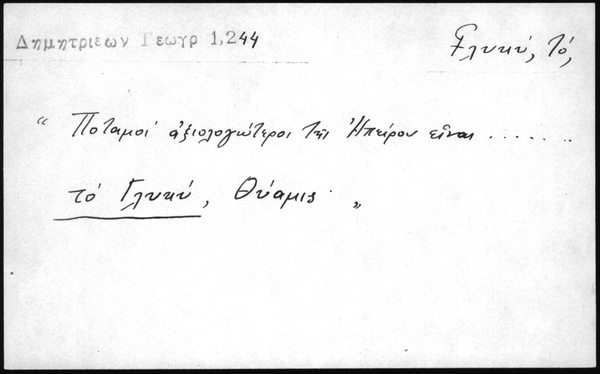 Δημητριεων Γεωγρ 1,244
Γλυκύ, τό,
“ Ποταμοί ἀξιολογώτεροι τῆς Ἠπείρου εἶναι .......
τό Γλυκύ, Θύαμις „